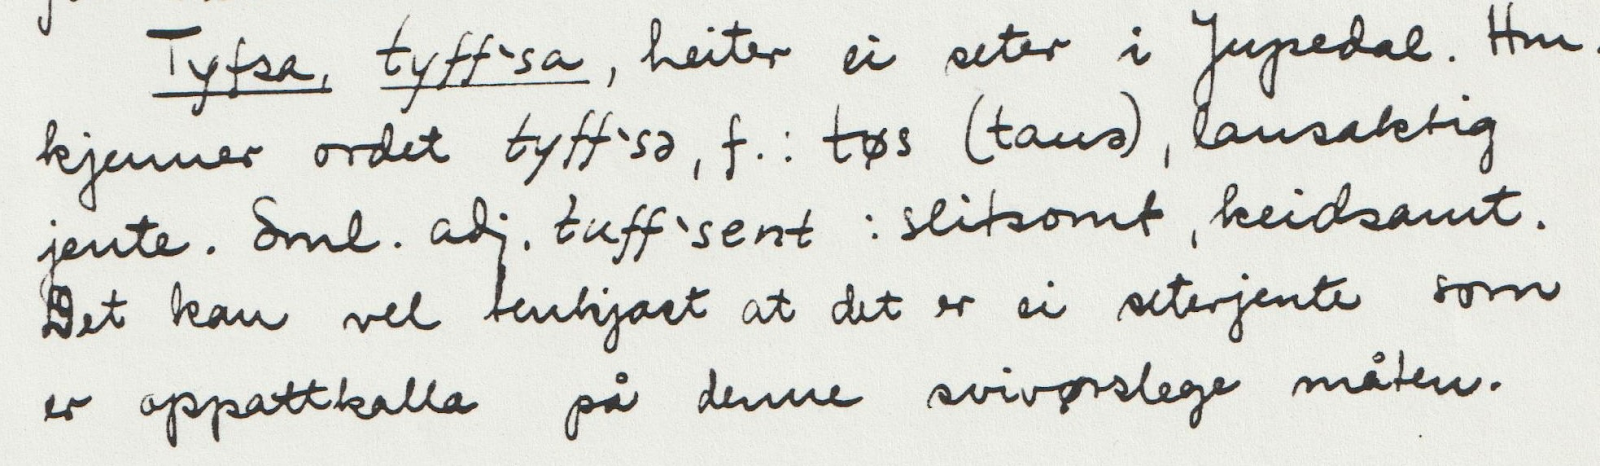 Tyfsa, tyff`sa, heiter ei seter i Jupedal. Hm.
kjenner ordet tyff`sə, f.: tøs (taus), lausaktig
jente. Sml. adj. tuff`sent : slitsomt, keidsamt.
Det kan vel tenkjast at det er ei seterjente som
er oppattkalla på denne svivørslege måten.